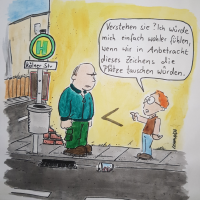 H
Kölner Str.
Verstehen sie? Ich würde
mich einfach wohler fühlen,
wenn wir in Anbetracht
dieses Zeichens die
Plätze tauschen würden.
<